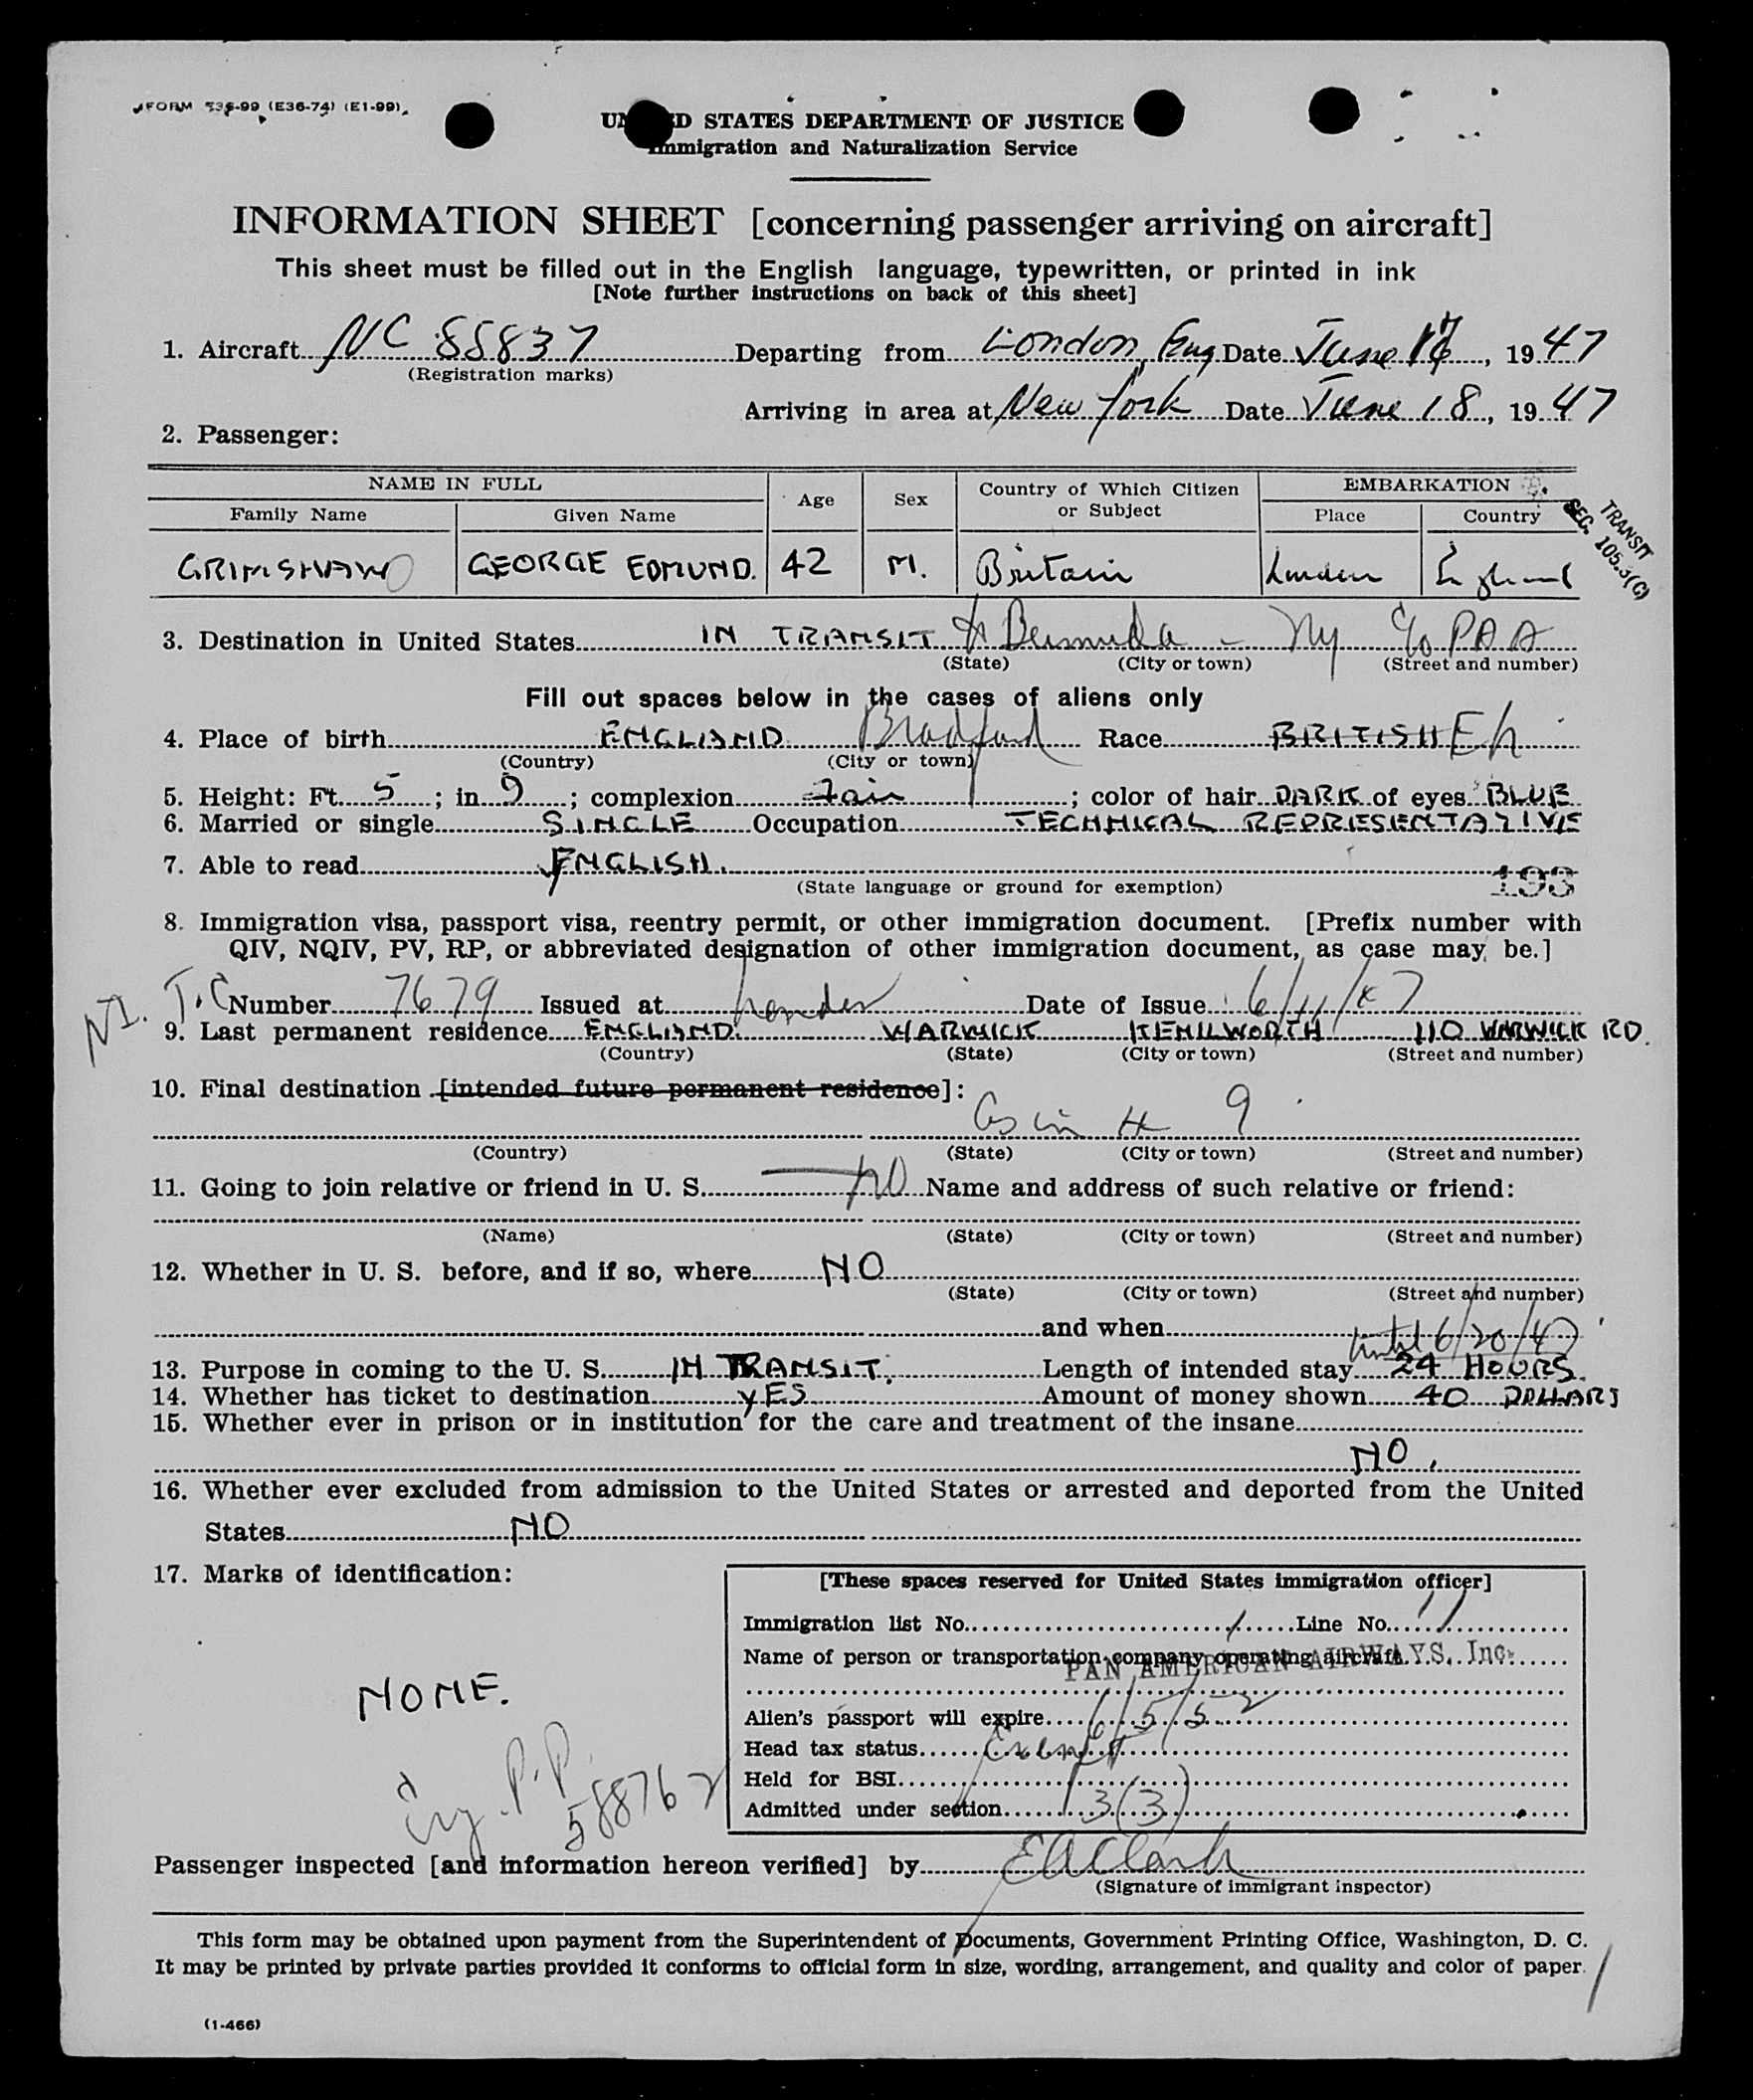 FORM 536-99 (E36-74) (E1-99)
D STATES DEPARTMENT OF JUSTICE
Immigration and Naturalization Service
INFORMATION SHEET [concerning passenger arriving on aircraft]
This sheet must be filled out in the English language, typewritten, or printed in ink
[Note further instructions on back of this sheet]
1. Aircraft NC 85837 Departing from London, Eng Date June 17, 1947
(Registration marks)
Arriving in area at New York Date June 18, 1947
2. Passenger:
NAME IN FULL Age Sex Country of Which Citizen or Subject EMBARKATION
Family Name Given Name Place Country
TRANSIT
SEC. 105.3(C)
GRIMSHAW GEORGE EDMUND. 42 M. Britain London England
3. Destination in United States IN TRANSIT to Bermuda - NY c/o PAA
(State) (City or town) (Street and number)
Fill out spaces below in the cases of aliens only
4. Place of birth ENGLAND Bradford Race BRITISH Eh
(Country) (City or town)
5. Height: Ft. 5; in. 9; complexion fair; color of hair DARK of eyes BLUE
6. Married or single SINGLE Occupation TECHNICAL REPRESENTATIVE
7. Able to read ENGLISH.
(State language or ground for exemption) 193
8. Immigration visa, passport visa, reentry permit, or other immigration document. [Prefix number with
QIV, NQIV, PV, RP, or abbreviated designation of other immigration document, as case may be.]
NI. T.C Number 7679 Issued at London Date of Issue 6/11/47
9. Last permanent residence ENGLAND. WARWICK KENILWORTH 110 WARWICK RD.
(Country) (State) (City or town) (Street and number)
10. Final destination [intended future permanent residence]:
As in # 9
(Country) (State) (City or town) (Street and number)
11. Going to join relative or friend in U. S. no Name and address of such relative or friend:
(Name) (State) (City or town) (Street and number)
12. Whether in U. S. before, and if so, where NO
(State) (City or town) (Street and number)
and when
until 6/20/47
13. Purpose in coming to the U. S. IN TRANSIT. Length of intended stay 24 HOURS.
14. Whether has ticket to destination YES Amount of money shown 40 DOLLARS
15. Whether ever in prison or in institution for the care and treatment of the insane
NO.
16. Whether ever excluded from admission to the United States or arrested and deported from the United
States NO
17. Marks of identification:
NONE.
P.P. 588762
[These spaces reserved for United States immigration officer]
Immigration list No. 1 Line No. 11
Name of person or transportation company operating aircraft
PAN AMERICAN AIRWAYS, Inc.
Alien's passport will expire 6/5/52
Head tax status Exempt
Held for BSI
Admitted under section 3(3)
Passenger inspected [and information hereon verified] by EA Clark
(Signature of immigrant inspector)
This form may be obtained upon payment from the Superintendent of Documents, Government Printing Office, Washington, D. C.
It may be printed by private parties provided it conforms to official form in size, wording, arrangement, and quality and color of paper.
(1-466)